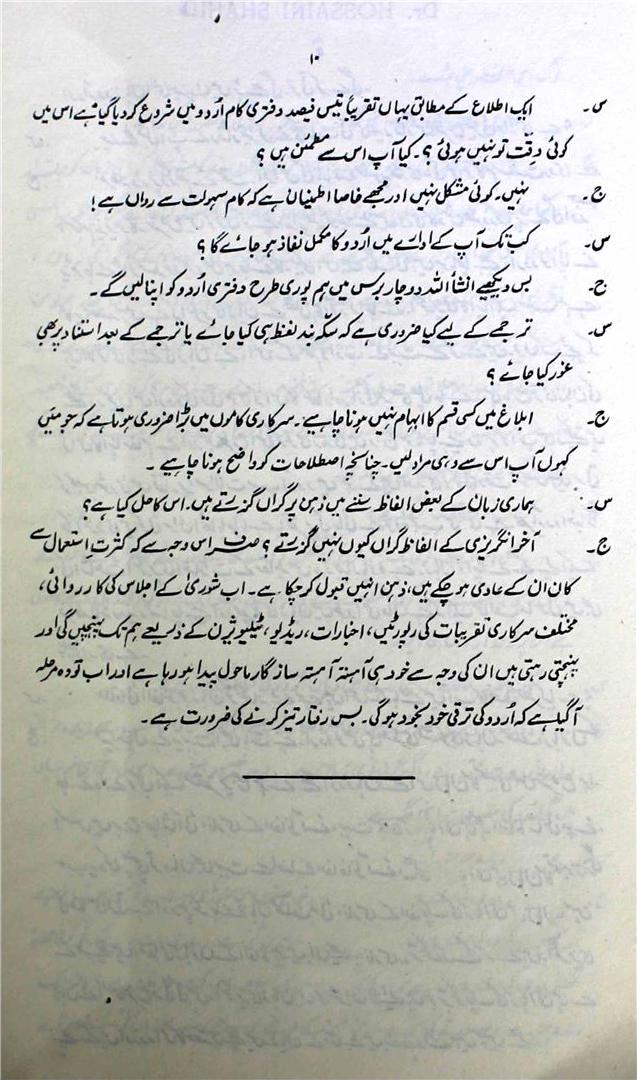 ۱۰
س۔ ایک اطلاع کے مطابق یہاں تقریباً تیس فیصد دفتری کام اُردو میں شروع کر دیا گیا ہے اس میں
کوئی دِقّت تو نہیں ہوئی ؟ ۔ کیا آپ اس سے مطمئن ہیں ؟
ج۔ نہیں۔ کوئی مشکل نہیں اور مجھے خاصا اطمینان ہے کہ کام سہولت سے رواں ہے !
س۔ کب تک آپ کے ادارے میں اُردو کا مکمل نفاذ ہو جائے گا ؟
ج۔ بس دیکھیے انشأاللہ دو چار برس میں ہم پوری طرح دفتری اُردو کو اپنا لیں گے ۔
س۔ ترجمے کے لیے کیا ضروری ہے کہ سکّہ بند لفظ ہی کیا جائے یا ترجمے کے بعد استناد پر بھی
غور کیا جائے ؟
ج۔ ابلاغ میں کسی قسم کا ابہام نہیں ہونا چاہیے ۔ سرکاری کاموں میں بڑا ضروری ہوتا ہے کہ جو میَں
کہوں آپ اس سے وہی مراد لیں۔ چنانچہ اصطلاحات کو واضح ہونا چاہیے ۔
س۔ ہماری زبان کے بعض الفاظ سننے میں ذہن پر گراں گزرتے ہیں۔ اس کا حل کیا ہے ؟
ج۔ آخر انگریزی کے الفاظ گراں کیوں نہیں گزرتے ؟ صرف اس وجہ سے کہ کثرتِ استعمال سے
کان ان کے عادی ہو چکے ہیں، ذہن انہیں قبول کر چکا ہے ۔ اب شوریٰ کے اجلاس کی کارروائی،
مختلف سرکاری تقریبات کی رپورٹیں، اخبارات، ریڈیو، ٹیلیویژن کے ذریعے ہم تک پہنچیں گی اور
پہنچتی رہتی ہیں ان کی وجہ سے خود ہی آہستہ آہستہ سازگار ماحول پیدا ہو رہا ہے اور اب تو وہ مرحلہ
آ گیا ہے کہ اُردو کی ترقی خود بخود ہو گی ۔ بس رفتار تیز کرنے کی ضرورت ہے ۔